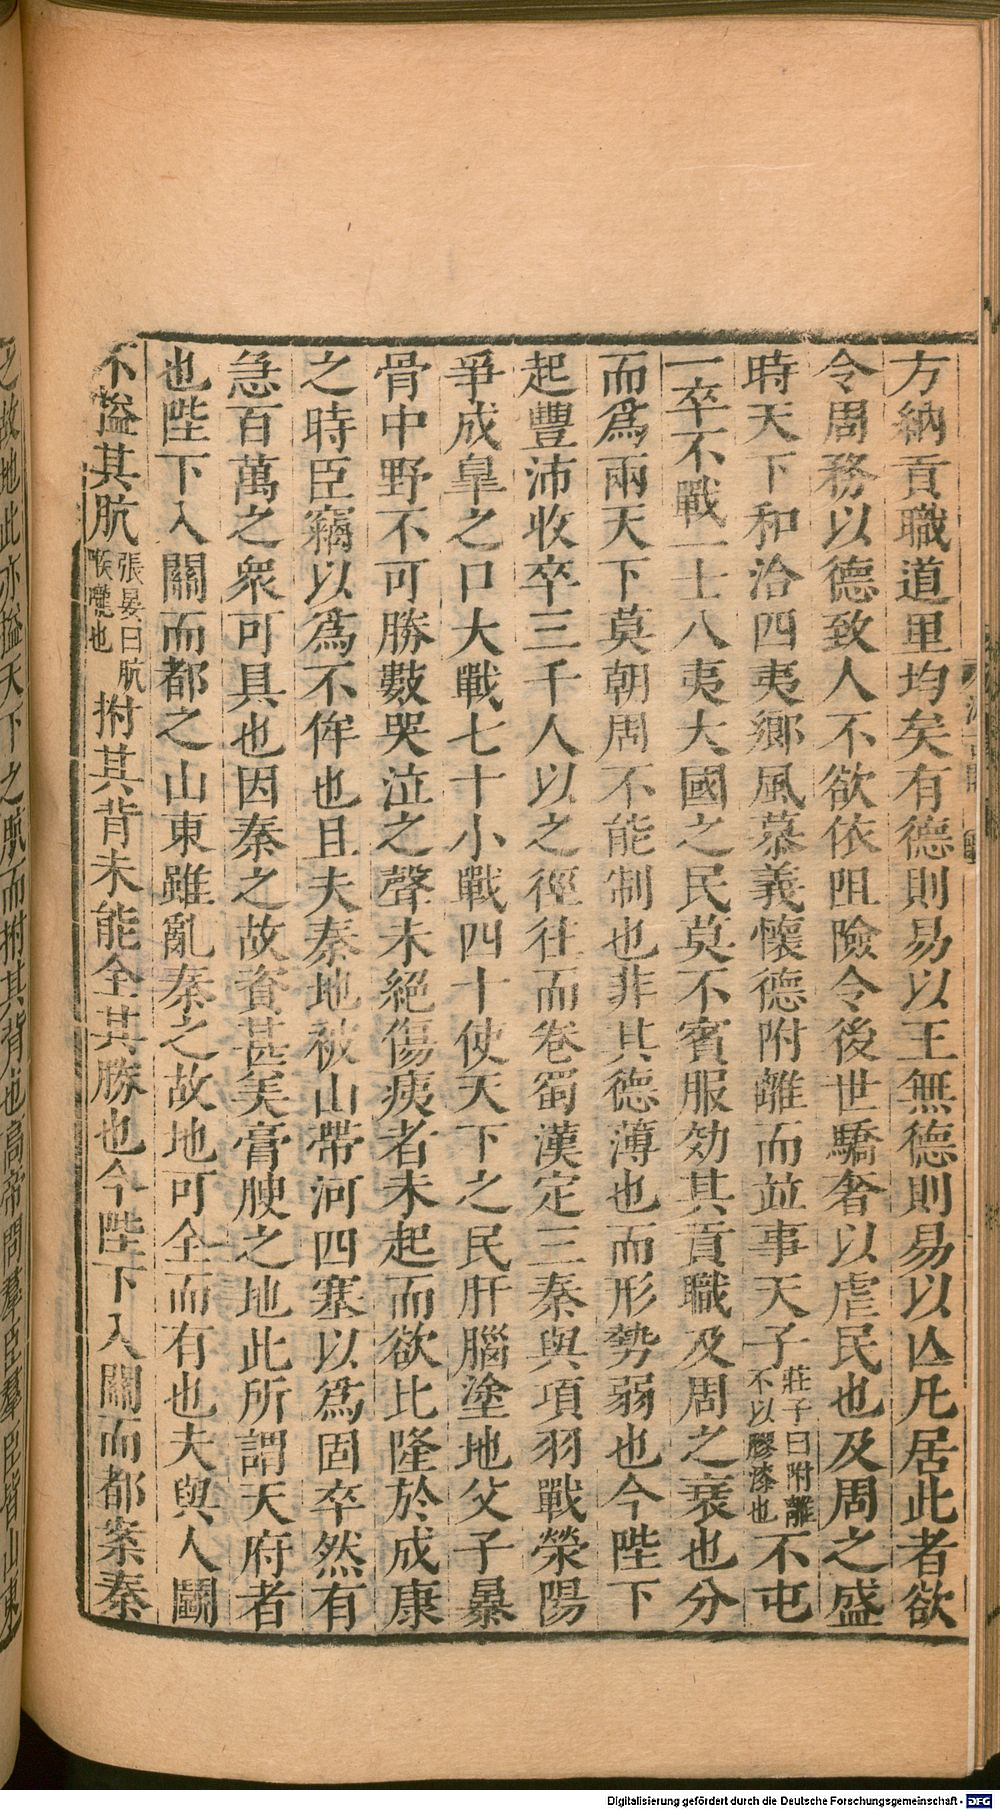 方納貢職道里均矣有德則易以王無德則易以亾凡居此者欲
令周務以德致人不欲依阻險令後世驕奢以虐民也及周之盛
時天下和洽四夷鄉風慕義懷德附離而並事天子莊子曰附離不以膠漆也不屯
一卒不戰一士八夷大國之民莫不賓服効其貢職及周之衰也分
而爲兩天下莫朝周不能制也非其德薄也而形勢弱也今陛下
起豐沛收卒三千人以之徑往而卷蜀漢定三秦與項羽戰滎陽
爭成皐之口大戰七十小戰四十使天下之民肝腦塗地父子暴
骨中野不可勝數哭泣之聲未絕傷痍者未起而欲比隆於成康
之時臣竊以爲不侔也且夫秦地被山帶河四塞以爲固卒然有
急百萬之衆可具也因秦之故資甚美膏腴之地此所謂天府者
也陛下入關而都之山東雖亂秦之故地可全而有也夫與人鬭
不搤其肮張晏曰肮喉嚨也拊其背未能全其勝也今陛下入關而都案秦
之故地此亦搤天下之肮而拊其背也高帝問羣臣羣臣皆山東
Digitalisierung gefördert durch die Deutsche Forschungsgemeinschaft - DFG